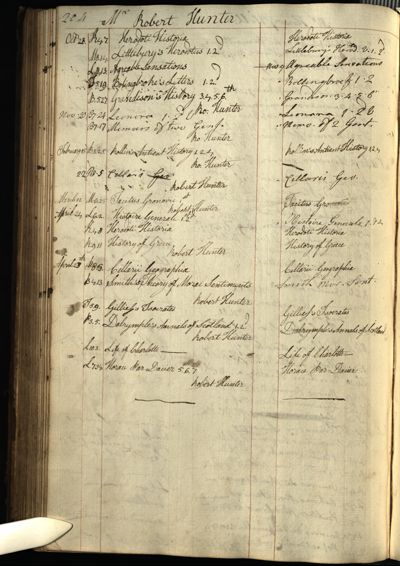 204 Mr Robert Hunter
Oct 28 Herodoti Historia Herodoti Historia
Littlebury's Herodotus 1.2 Littlebury's Herod. 1.2
Agreable Sensations Agreable Sensations
Bolingbroke's Letters 1.2 Bollingbrook 1-2
Grandison's History 3 4 5 6th Grandison 3 4 5 6
Ro. Hunter
Leonora 1.2 Leonora 1-2
Memoirs of Two Gent. Mem. of 2 Gent.
Ro. Hunter
Rollin's Antient History 1 2 Rollin's Antient History 1 2
Ro. Hunter
22 Cellarii Geo Cellarii Geo.
Robert Hunter
Tacitus Gronovii Tacitus Gronov
Robert Hunter
April Histoire Generale 1.2 Histoire Generale 1.2
Herodoti Historia Herodoti Historia
History of Greece History of Greece
Robert Hunter
April Cellarii Geographia Cellarii Geographia
Smith's Theory of Moral Sentiments Smith Mor. Sent.
Robert Hunter
Gillies's Isocrates Gillies's Isocrates
Dalrymple's Annals of Scotland 1,2 Dalrymple's Annals of Scotland
Robert Hunter
Life of Charlotte Life of Charlotte
Horace Par Dacier 5.6.7 Horace Par Dacier
Robert Hunter